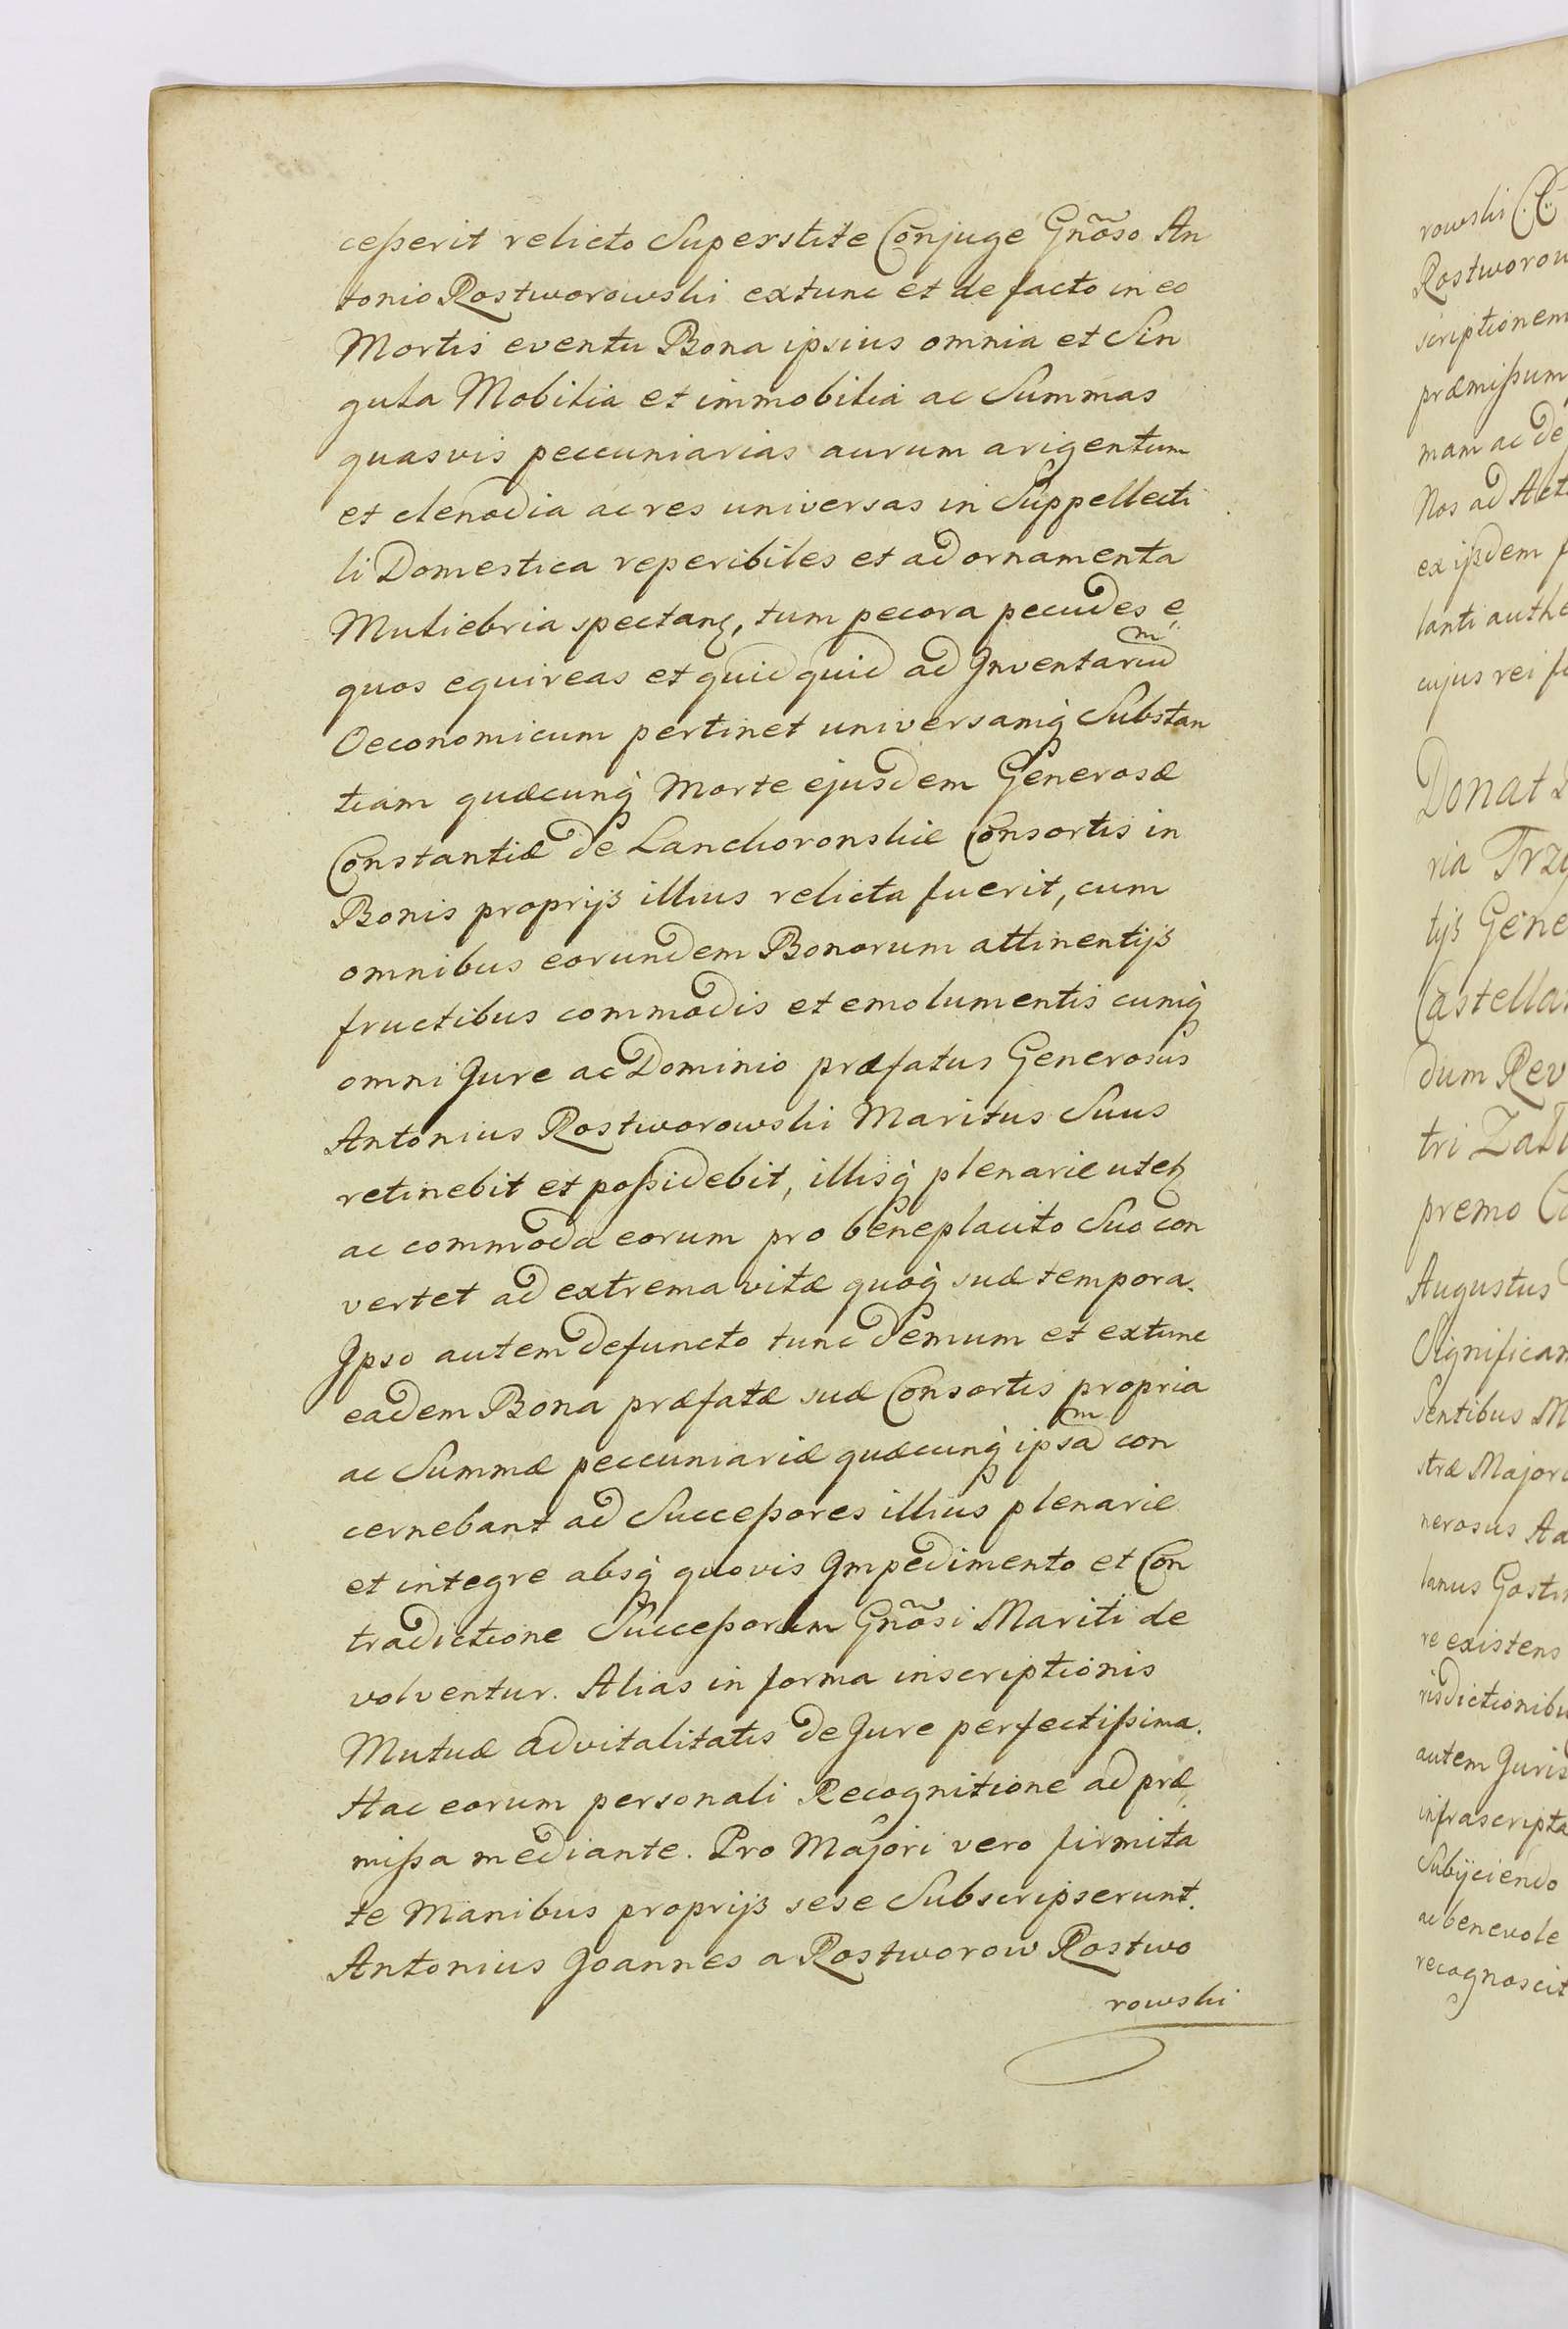 ceßerit relicto Superstite Conjuge Gnõso An
tonio Rostworowski extunc et de facto in eo
Mortis eventu Bona ipsius omnia et Sin
gula Mobilia et immobilia ac Summas
quasvis peccuniarias aurum arigentum
et clenodia ac res universas in Suppellecti
li Domestica reperibiles et ad ornamenta
Muliebria spectanꝭ, tum pecora pecudes e
quos equireas et quidquid ad Inventariuͫ
Oeconomicum pertinet universamq̃ Substan
tiam quæcunq̃ Morte ejusdem Generosæ
Constantiæ de Lanckoronskie Consortis in
Bonis proprijs illius relicta fuerit, cum
omnibus eorundem Bonorum attinentijs
fructibus commodis et emolumentis cumq̃
omni Jure ac Dominio præfatus Generosus
Antonius Rostworowski Maritus Suus
retinebit et poßidebit, illisq̃ plenarie utetꝛ
ac commoda eorum pro beneplacito Suo con
vertet ad extrema vitæ quoq̃ suæ tempora.
Ipso autem defuncto tunc demum et extunc
eadem Bona præfatæ suæ Consortis propria
ac Summæ peccuniariæ quæcunq̃ ipsaͫ con
cernebant ad Succeßores illius plenarie
et integre absq̃ quovis Impedimento et Con
tradictione Succeßorum Gnõsi Mariti de
volventur. Alias in forma inscriptionis
Mutuæ advitalitatis de Jure perfectißima.
Hac eorum personali Recognitione ad præ
mißa mediante. Pro Majori vero firmita
te Manibus proprijs sese Subscripserunt.
Antonius Joannes a Rostworow Rostwo
rowski
rowski
Rostworow
scriptionem
præmißum
mam ac de
Nos ad Act
ex ijsdem
lanti authe
cujus rei
Donat
ria Trz
tijs Gene
Castella
dum Rev
tri Zał
premo
Augustus
Significa
sentibus M
stræ Major
nerosus
lanus Gosti
re existens
risdictionibu
autem Juris
infrascripta
Subijciendo
ac benevole
recognoscit